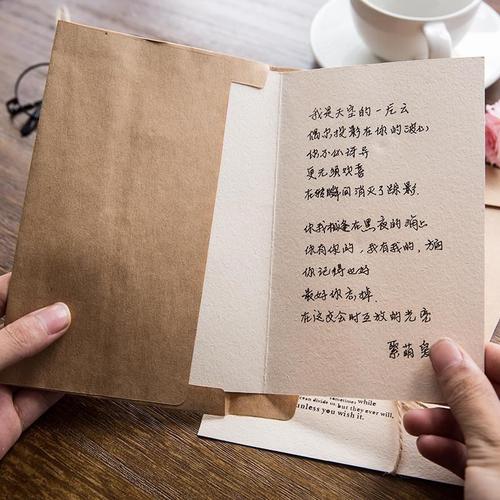 我是天空的一片云
偶尔投影在你的波心
你不必讶异
更无须欢喜
在转瞬间消灭了踪影
你我相逢在黑夜的海上
你有你的，我有我的，方向
你记得也好
最好你忘掉
在这交会时互放的光亮
聚萌
sometimes while
ocean divide us, but they ever will,
unless you wish it.